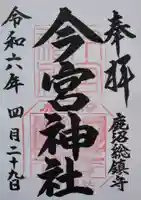 奉拝
鹿沼総鎮守
今宮神社
令和六年 四月二十九日